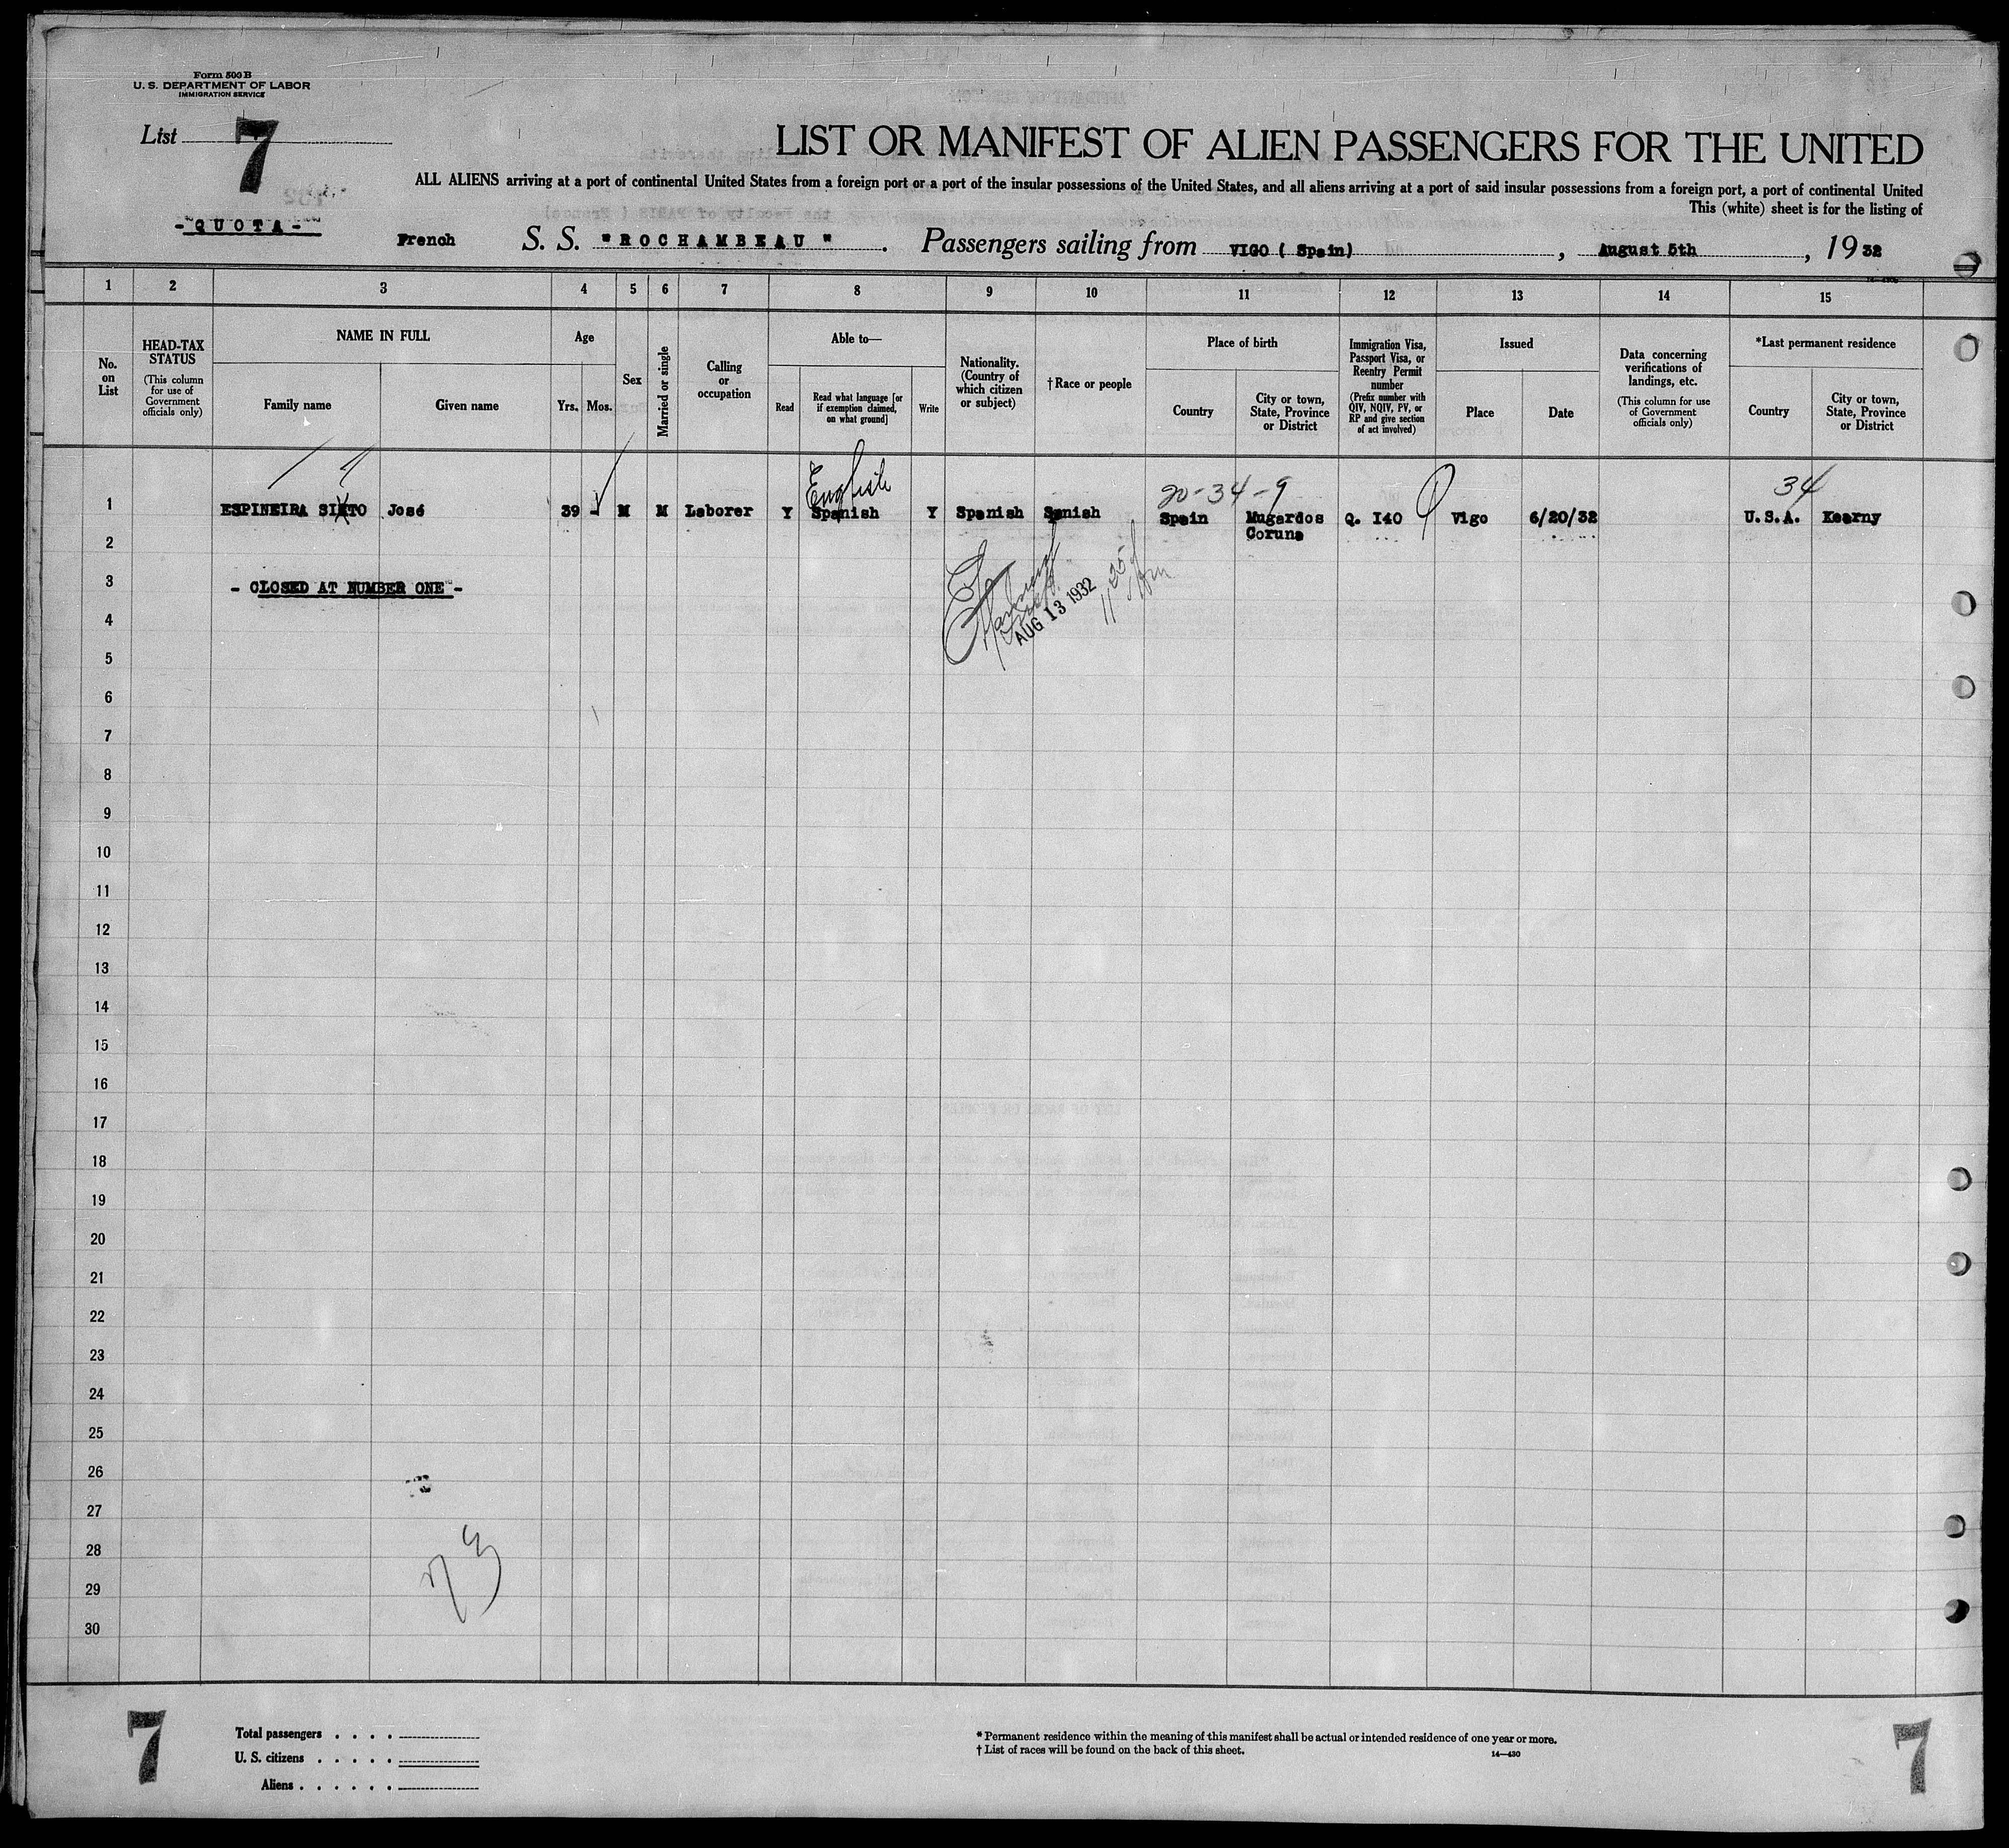 Form 500 B
U. S. DEPARTMENT OF LABOR
IMMIGRATION SERVICE
List 7
LIST OR MANIFEST OF ALIEN PASSENGERS FOR THE UNITED
ALL ALIENS arriving at a port of continental United States from a foreign port or a port of the insular possessions of the United States, and all aliens arriving at a port of said insular possessions from a foreign port, a port of continental United
This (white) sheet is for the listing of
-QUOTA-
French S. S. "ROCHAMBEAU". Passengers sailing from VIGO ( Spain) , August 5th , 1932
1 2 3 4 5 6 7 8 9 10 11 12 13 14 15
No. on List
HEAD-TAX STATUS
(This column for use of Government officials only)
NAME IN FULL
Family name Given name
Age
Yrs. Mos.
Sex
Married or single
Calling or occupation
Able to—
Read
Read what language [or if exemption claimed, on what ground]
Write
Nationality. (Country of which citizen or subject)
†Race or people
Place of birth
Country
City or town, State, Province or District
Immigration Visa, Passport Visa, or Reentry Permit number
(Prefix number with QIV, NQIV, PV, or RP and give section of act involved)
Issued
Place Date
Data concerning verifications of landings, etc.
(This column for use of Government officials only)
*Last permanent residence
Country
City or town, State, Province or District
English
20-34-9
34
1 ESPINEIRA SIXTO José 39 - M M Laborer Y Spanish Y Spanish Spanish Spain Mugardos Q. I40 Vigo 6/20/32 U.S.A. Kearny
Coruna
2
3 - CLOSED AT NUMBER ONE -
AUG 13 1932
4
5
6
7
8
9
10
11
12
13
14
15
16
17
18
19
20
21
22
23
24
25
26
27
28
29
30
7
Total passengers . . . .
U. S. citizens . . . . .
Aliens . . . . . .
* Permanent residence within the meaning of this manifest shall be actual or intended residence of one year or more.
† List of races will be found on the back of this sheet.
14—430
7